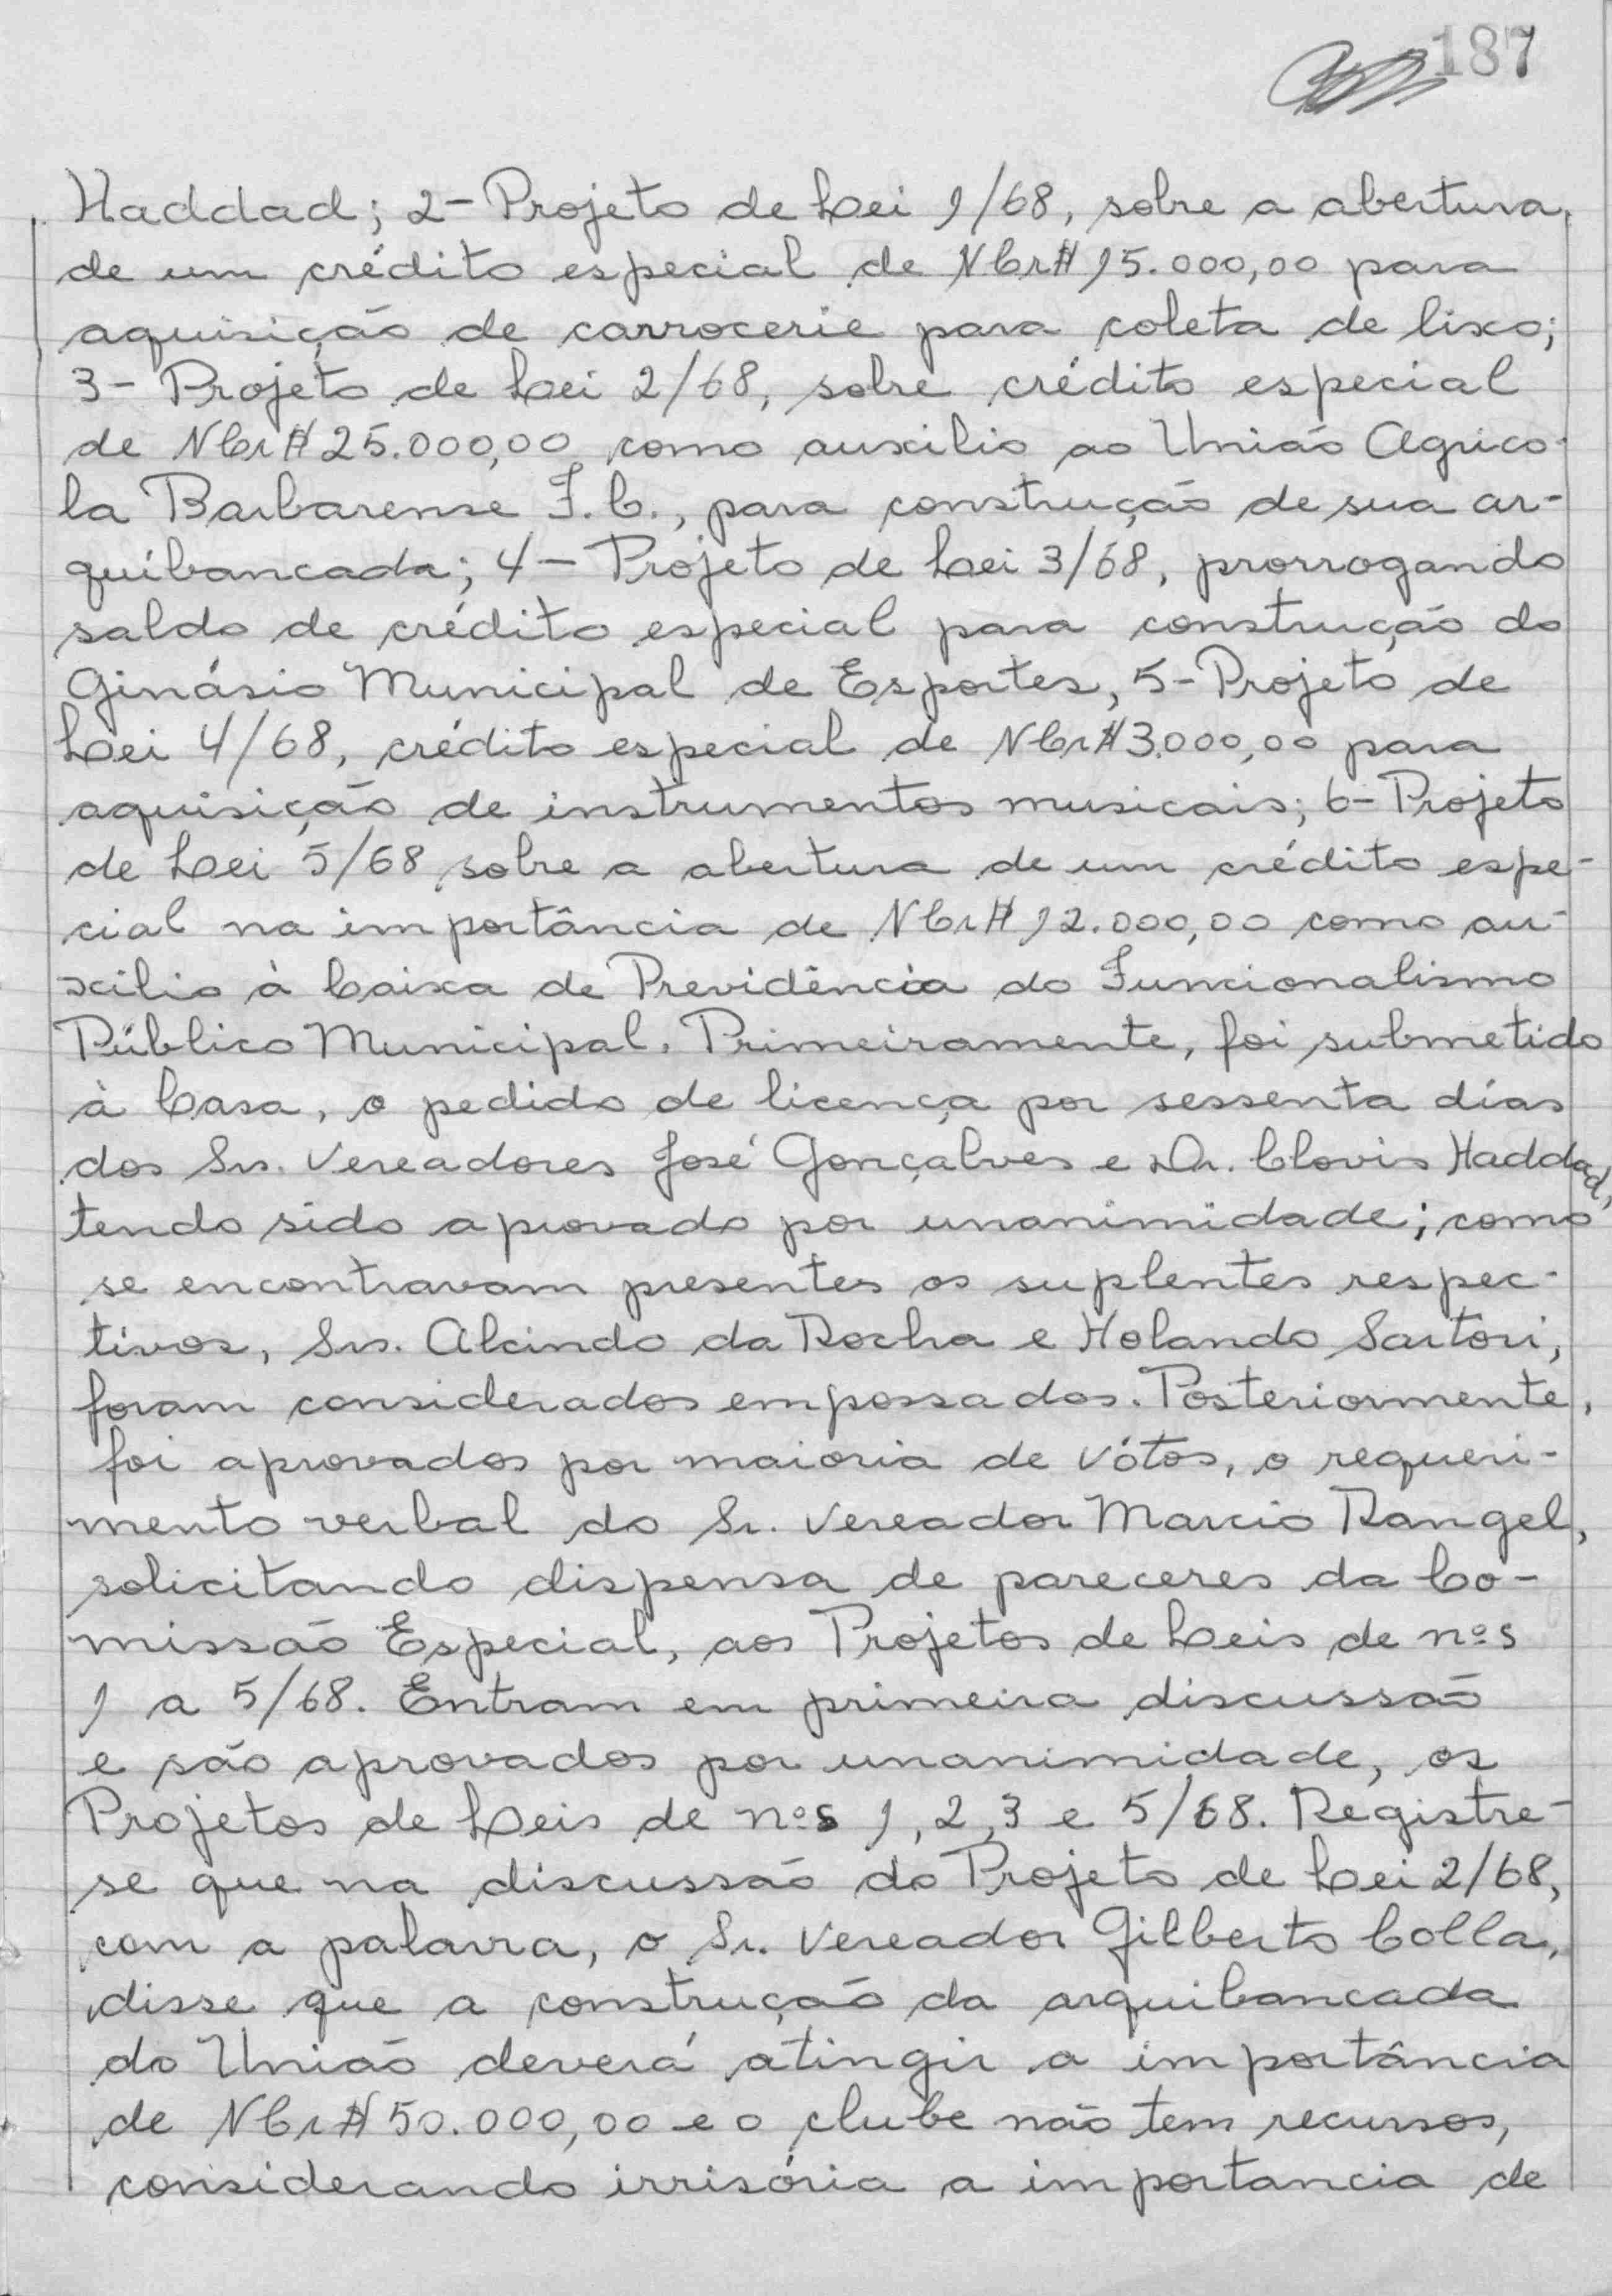 187
Haddad; 2- Projeto de Lei 1/68, sobre a abertura
de um crédito especial de NCr$ 15.000,00 para
aquisição de carrocerie para coleta de lixo;
3- Projeto de Lei 2/68, sobre crédito especial
de NCr$ 25.000,00 como auxilio ao União Agrico-
la Barbarense F.C., para construção de sua ar-
quibancada; 4- Projeto de Lei 3/68, prorrogando
saldo de crédito especial para construção do
Ginásio Municipal de Esportes, 5- Projeto de
Lei 4/68, crédito especial de NCr$ 3.000,00 para
aquisição de instrumentos musicais; 6- Projeto
de Lei 5/68 sobre a abertura de um crédito espe-
cial na importância de NCr$ 12.000,00 como au-
xilio à Caixa de Previdência do Funcionalismo
Público Municipal. Primeiramente, foi submetido
à Casa, o pedido de licença por sessenta dias
dos Srs. Vereadores José Gonçalves e Dr. Clovis Haddad,
tendo sido aprovado por unanimidade; como
se encontravam presentes os suplentes respec-
tivos, Srs. Alcindo da Rocha e Holando Sartori,
foram considerados empossados. Posteriormente,
foi aprovados por maioria de vótos, o requeri-
mento verbal do Sr. Vereador Marcio Rangel,
solicitando dispensa de pareceres da Co-
missão Especial, aos Projetos de Leis de nºs
1 a 5/68. Entram em primeira discussão
e são aprovados por unanimidade, os
Projetos de Leis de nºs 1, 2, 3 e 5/68. Registre-
se que na discussão do Projeto de Lei 2/68,
com a palavra, o Sr. Vereador Gilberto Colla,
disse que a construção da arquibancada
do União deverá atingir a importância
de NCr$ 50.000,00 e o clube não tem recursos,
considerando irrisória a importancia de